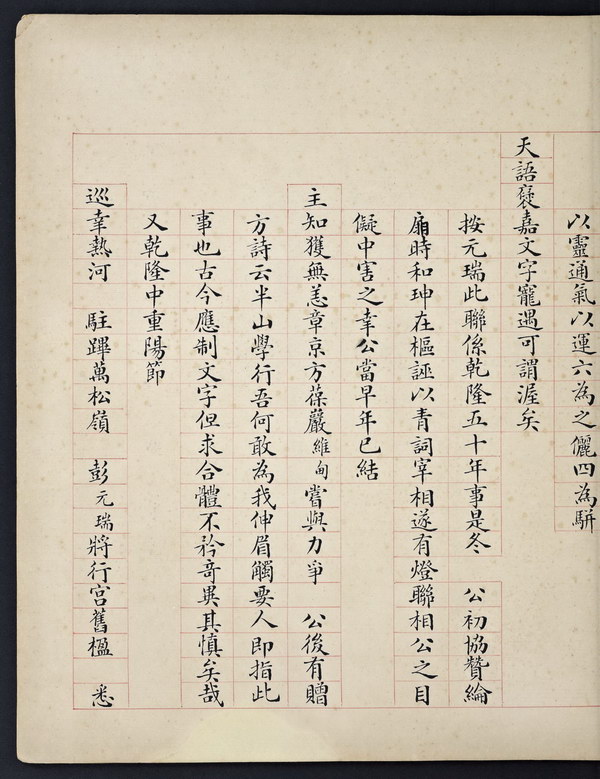 以靈通氣以運六為之儷四為駢
天語褒嘉文字寵遇可謂渥矣
按元瑞此聯係乾隆五十年事是冬 公初協贊綸
扉時和珅在樞誣以青詞宰相遂有燈聯相公之目
儗中害之幸公當早年已結
主知獲無恙章京方葆巖維甸嘗與力爭 公後有贈
方詩云半山學行吾何敢為我伸眉觸要人即指此
事也古今應制文字但求合體不矜奇異其慎矣哉
又乾隆中重陽節
巡幸熱河 駐蹕萬松嶺 彭元瑞將行宮舊楹 悉